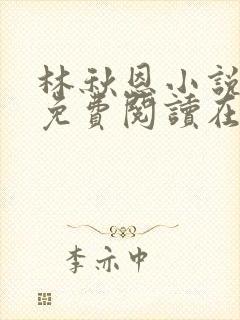 林秋恩小說
免費閱讀在
李亦中